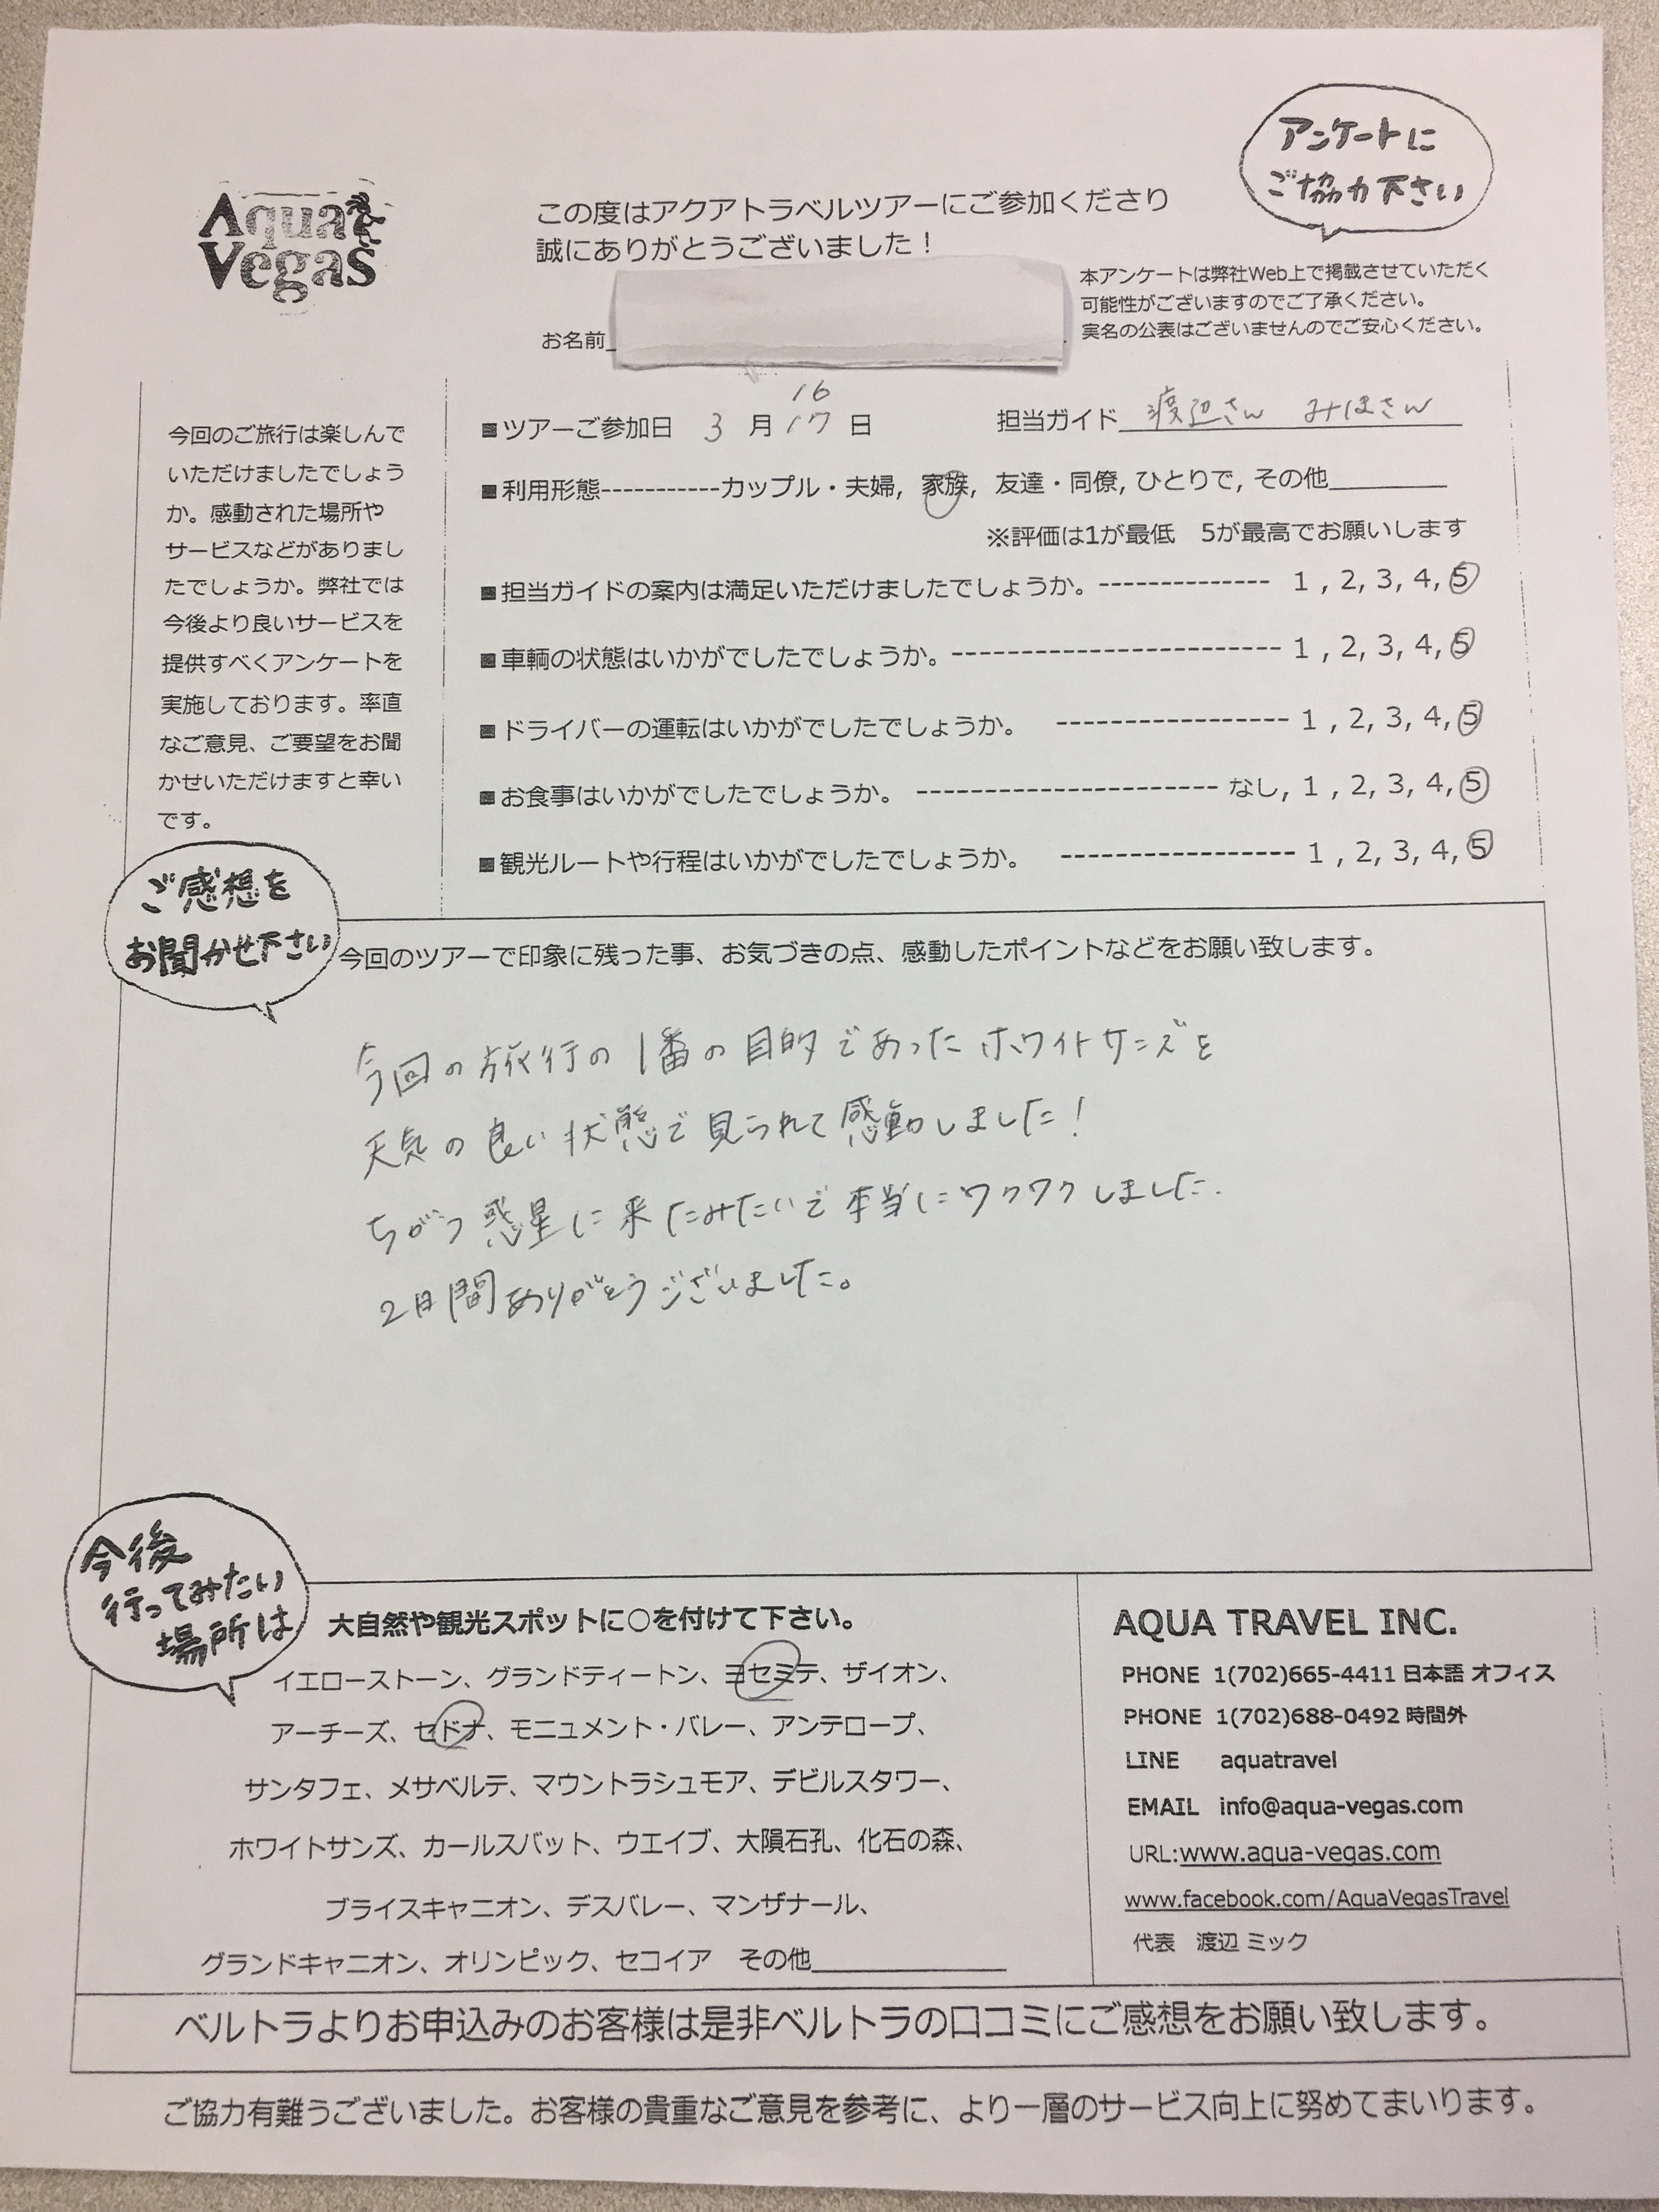 アンケートに
ご協力下さい
Aqua
Vegas
この度はアクアトラベルツアーにご参加くださり
誠にありがとうございました!
お名前
本アンケートは弊社Web上で掲載させていただく
可能性がございますのでご了承ください。
実名の公表はございませんのでご安心ください。
今回のご旅行は楽しんで
いただけましたでしょう
か。感動された場所や
サービスなどがありまし
たでしょうか。弊社では
今後より良いサービスを
提供すべくアンケートを
実施しております。率直
なご意見、ご要望をお聞
かせいただけますと幸い
です。
16
■ツアーご参加日 3 月 17 日 担当ガイド 渡辺さん みほさん
■利用形態-----------カップル・夫婦, 家族, 友達・同僚, ひとりで, その他
※評価は1が最低 5が最高でお願いします
■担当ガイドの案内は満足いただけましたでしょうか。------------- 1 , 2, 3, 4, 5
■車輌の状態はいかがでしたでしょうか。------------------------ 1 , 2, 3, 4, 5
■ドライバーの運転はいかがでしたでしょうか。 ----------------- 1 , 2, 3, 4, 5
■お食事はいかがでしたでしょうか。 ---------------------- なし, 1 , 2, 3, 4, 5
■観光ルートや行程はいかがでしたでしょうか。 ----------------- 1 , 2, 3, 4, 5
ご感想を
お聞かせ下さい
今回のツアーで印象に残った事、お気づきの点、感動したポイントなどをお願い致します。
今回の旅行の1番の目的であったホワイトサンズを
天気の良い状態で見られて感動しました!
ちがう惑星に来たみたいで本当にワクワクしました.
2日間ありがとうございました。
今後
行ってみたい
場所は
大自然や観光スポットに○を付けて下さい。
イエローストーン、グランドティートン、ヨセミテ、ザイオン、
アーチーズ、セドナ、モニュメント・バレー、アンテロープ、
サンタフェ、メサベルテ、マウントラシュモア、デビルスタワー、
ホワイトサンズ、カールスバット、ウエイブ、大隕石孔、化石の森、
ブライスキャニオン、デスバレー、マンザナール、
グランドキャニオン、オリンピック、セコイア その他
AQUA TRAVEL INC.
PHONE 1(702)665-4411 日本語 オフィス
PHONE 1(702)688-0492 時間外
LINE aquatravel
EMAIL info@aqua-vegas.com
URL:www.aqua-vegas.com
www.facebook.com/AquaVegasTravel
代表 渡辺 ミック
ベルトラよりお申込みのお客様は是非ベルトラの口コミにご感想をお願い致します。
ご協力有難うございました。お客様の貴重なご意見を参考に、より一層のサービス向上に努めてまいります。